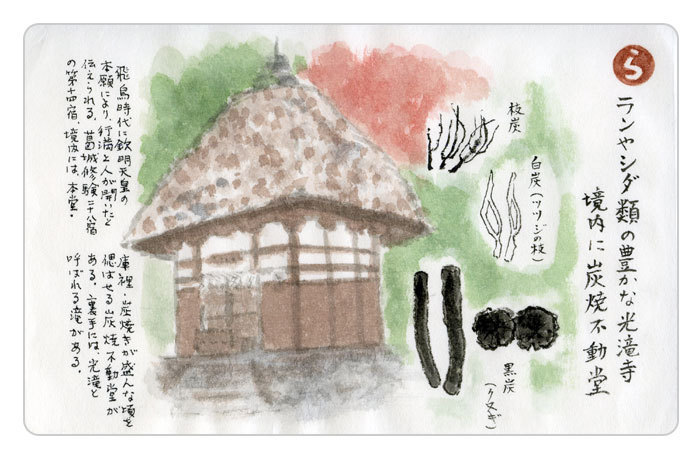 ら
ランやシダ類の豊かな光滝寺
境内に炭焼不動堂
枝炭
白炭(ツツジの枝)
黒炭
(クヌギ)
飛鳥時代に欽明天皇の
本願により、行満上人が開いたと
伝えられる。葛城修験二十八宿
の第十四宿。境内には、本堂・
庫裡・炭焼きが盛んな頃を
偲ばせる炭焼不動堂が
ある。裏手には、光滝と
呼ばれる滝がある。